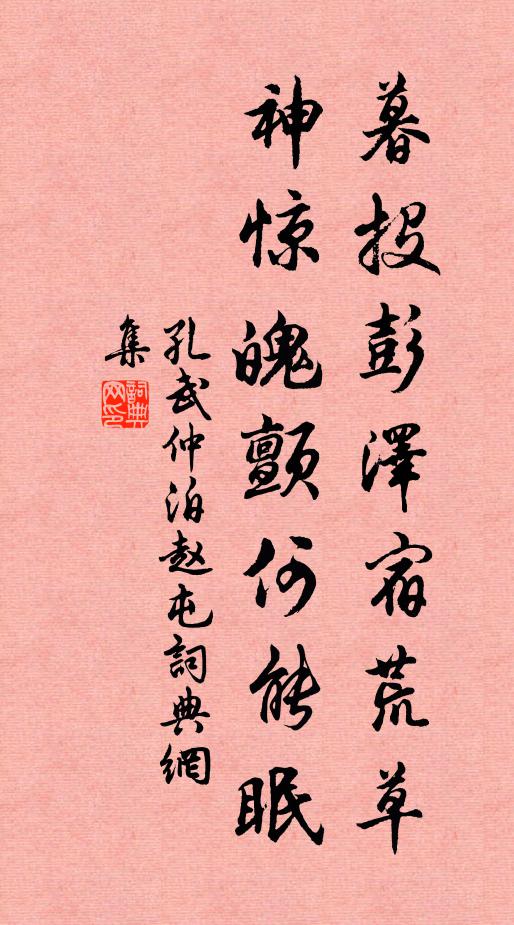 暮投彭澤宿荒草
神惊魄颤何能眠
孔武仲泊赵屯詞典網
集
詞典网印